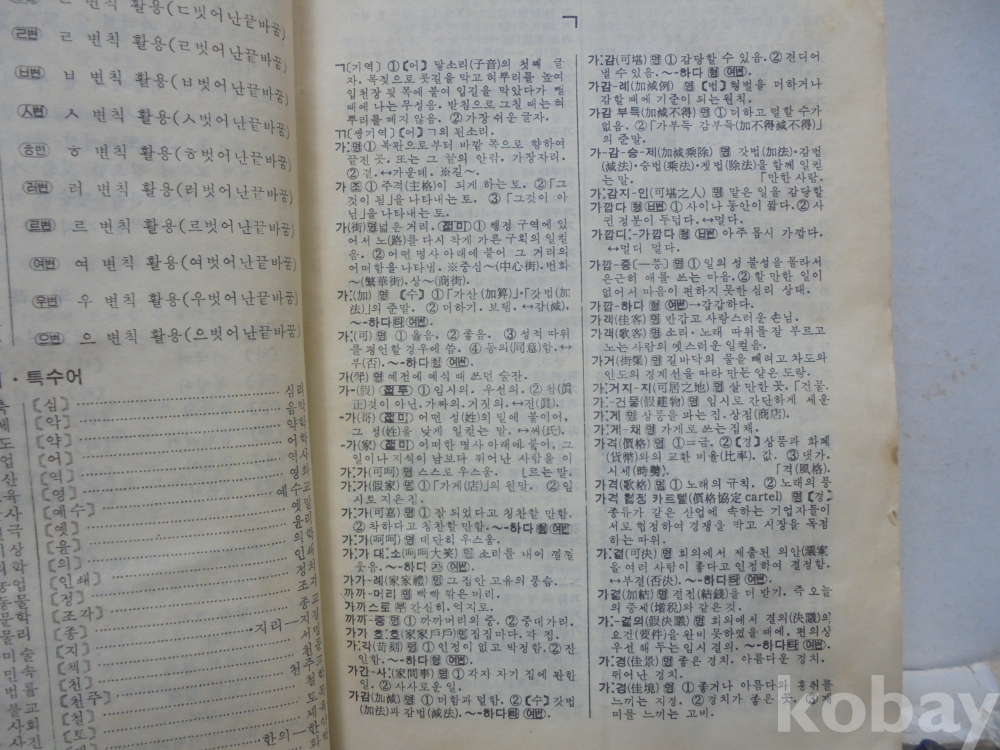 ㄷ 변칙 활용(ㄷ벗어난끝바꿈)
ㄹ변 ㄹ 변칙 활용(ㄹ벗어난끝바꿈)
ㅂ변 ㅂ 변칙 활용(ㅂ벗어난끝바꿈)
ㅅ변 ㅅ 변칙 활용(ㅅ벗어난끝바꿈)
ㅎ변 ㅎ 변칙 활용(ㅎ벗어난끝바꿈)
러변 러 변칙 활용(러벗어난끝바꿈)
르변 르 변칙 활용(르벗어난끝바꿈)
여변 여 변칙 활용(여벗어난끝바꿈)
우변 우 변칙 활용(우벗어난끝바꿈)
으변 으 변칙 활용(으벗어난끝바꿈)
·특수어
[심] 심리
[악] 음악
[약] 약학
[어] 어학
[역] 역사
[영] 영화
[예수] 예수교
[옛] 옛말
[윤] 윤리
[의] 의학
[인쇄] 인쇄
[정] 정치
[조각] 조각
[종] 종교
[지] 지리―지질
[책]
[천]
[천주] 천주교
[철]
[토]
한의―한
ㄱ
ㄱ[기역] ①[어] 닿소리(子音)의 첫째 글
자. 목젖으로 콧길을 막고 혀뿌리를 높여
입천장 뒷 쪽에 붙여 입길을 막았다가 뗄
때에 나는 무성음. 받침으로 그칠 때는 혀
뿌리를 떼지 않음. ②가장 쉬운 글자.
ㄲ[쌍기역] [어] ㄱ의 된소리.
가: 명 ①복판으로부터 바깥 쪽으로 향하여
끝진 곳. 또는 그 끝의 안팎. 가장자리.
②곁. ↔가운데. ※길~.
가 조 ①주격(主格)이 되게 하는 토. ②「그
것이 됨」을 나타내는 토. ③「그것이 아
님」을 나타내는 토.
가(街) 명 넓은 거리. 접미 ①행정 구역에 있
어서 노(路)를 다시 작게 가른 구획의 일컬
음. ②어떤 명사 아래에 붙어 그 거리의
어떠함을 나타냄. ※중심~(中心街). 번화
~(繁華街). 상~(商街).
가:(加) 명 [수] ①「가산(加算)」·「갓법(加
法)」의 준말. ②더하기. 보탬. ↔감(減).
~-하다 타 여변.
가:(可) 명 ①옳음. ②좋음. ③성적 따위
를 평언할 경우에 씀. ④동의(同意)함. ↔
부(否). ~-하다 형 여변.
가(斝) 명 예전에 예식 때 쓰던 술잔.
가-(假) 접두 ①임시의. 우선의. ②참(眞
正)것이 아닌. 가짜의. 거짓의. ↔진(眞).
-가(哥) 접미 어떤 성(姓)의 밑에 붙이어,
그 성(姓)을 낮게 일컫는 말. ↔씨(氏).
-가(家) 접미 어떠한 명사 아래에 붙어, 그
일이나 지식이 남보다 뛰어난 사람을 이
가:가(可呵) 명 스스로 우스움. [르는 말.
가:가(假家) 명 ①「가게(店)」의 원말. ②임
시로 지은 집.
가:가(可嘉) 명 ①잘 되었다고 칭찬할 만함.
②착하다고 칭찬할 만함. ~-하다 형 여변
가:가(呵呵) 명 대단히 우스움.
가:가 대:소(呵呵大笑) 명 소리를 내어 껄껄
웃음. ~-하다 자 여변.
가가-례(家家禮) 명 그 집안 고유의 풍습.
까까-머리 명 빡빡 깎은 머리.
까까스로 부 간신히. 억지로.
까까-중 명 ①까까머리의 중. ②중대가리.
가가 호:호(家家戶戶) 명 집집마다. 각 집.
가:각(苛刻) 명 ①인정이 없고 박정함. ②잔
인함. ~-하다 형 여변.
가간-사(家間事) 명 ①각자 자기 집에 관한
일. ②사사로운 일.
가감(加減) 명 ①더함과 덜함. ②[수] 갓법
(加法)과 감법(減法). ~-하다 타 여변.
가:감(可堪) 명 ①감당할 수 있음. ②견디어
낼 수 있음. ~-하다 형 여변.
가감-례(加減例) 명 [법] 형벌을 더하거나
감할 때에 기준이 되는 원칙.
가감 부득(加減不得) 명 ①더하고 덜할 수가
없음. ②「가부득 감부득(加不得減不得)」
의 준말.
가-감-승-제(加減乘除) 명 갓법(加法)·감법
(減法)·승법(乘法)·제법(除法)을 함께 일컫
는 말. 「만한 사람.
가:감지-인(可堪之人) 명 맡은 일을 감당할
가깝다 형 ㅂ변 ①사이나 동안이 짧다. ②사
귄 정분이 두텁다. ↔멀다.
가깝디:-가깝다 형 ㅂ변 아주 몹시 가깝다.
↔멀디 멀다.
가깝-증[―쯩] 명 ①일의 성 불성을 몰라서
은근히 애를 쓰는 마음. ②할 만한 일이
없어서 마음이 편하지 못한 심리 상태.
가깝-하다 형 여변→갑갑하다.
가객(佳客) 명 반갑고 사랑스러운 손님.
가객(歌客) 명 소리·노래 따위를 잘 부르고
노는 사람의 옛스러운 일컬음.
가거(街渠) 명 길바닥의 물을 빼려고 차도와
인도의 경계선을 따라 만든 얕은 도랑.
가:거지-지(可居之地) 명 살 만한 곳. 「건물.
가:-건물(假建物) 명 임시로 간단하게 세운
가:게 명 상품을 파는 집. 상점(商店).
가:게-채 명 가게로 쓰는 집채.
가격(價格) 명 ①=금. ②[경] 상품과 화폐
(貨幣)와의 교환 비율(比率). 값. ③댓가.
시세(時勢). 「격(風格).
가격(歌格) 명 ①노래의 규칙. ②노래의 풍
가격 협정 카르텔(價格協定 cartel) 명 [경]
종류가 같은 산업에 속하는 기업자들이
서로 협정하여 경쟁을 막고 시장을 독점
하는 따위.
가:결(可決) 명 회의에서 제출된 의안(議案)
을 여러 사람이 좋다고 인정하여 결정함.
↔부결(否決). ~-하다 타 여변.
가결(加結) 명 결전(結錢)을 더 받기. 즉 오늘
의 증세(增税)와 같은 것.
가:-결의(假決議) 명 회의에서 결의(決議)의
요건(要件)을 완비 못하였을 때에, 편의상
우선 해 두는 임시 결의. ~-하다 타 여변.
가:경(佳景) 명 좋은 경치. 아름다운 경치.
뛰어난 경치.
가:경(佳境) 명 ①좋거나 아름다와 흥취를
느끼는 지경. ②경치가 좋은 곳. ③재
미를 느끼는 고비.
kobay